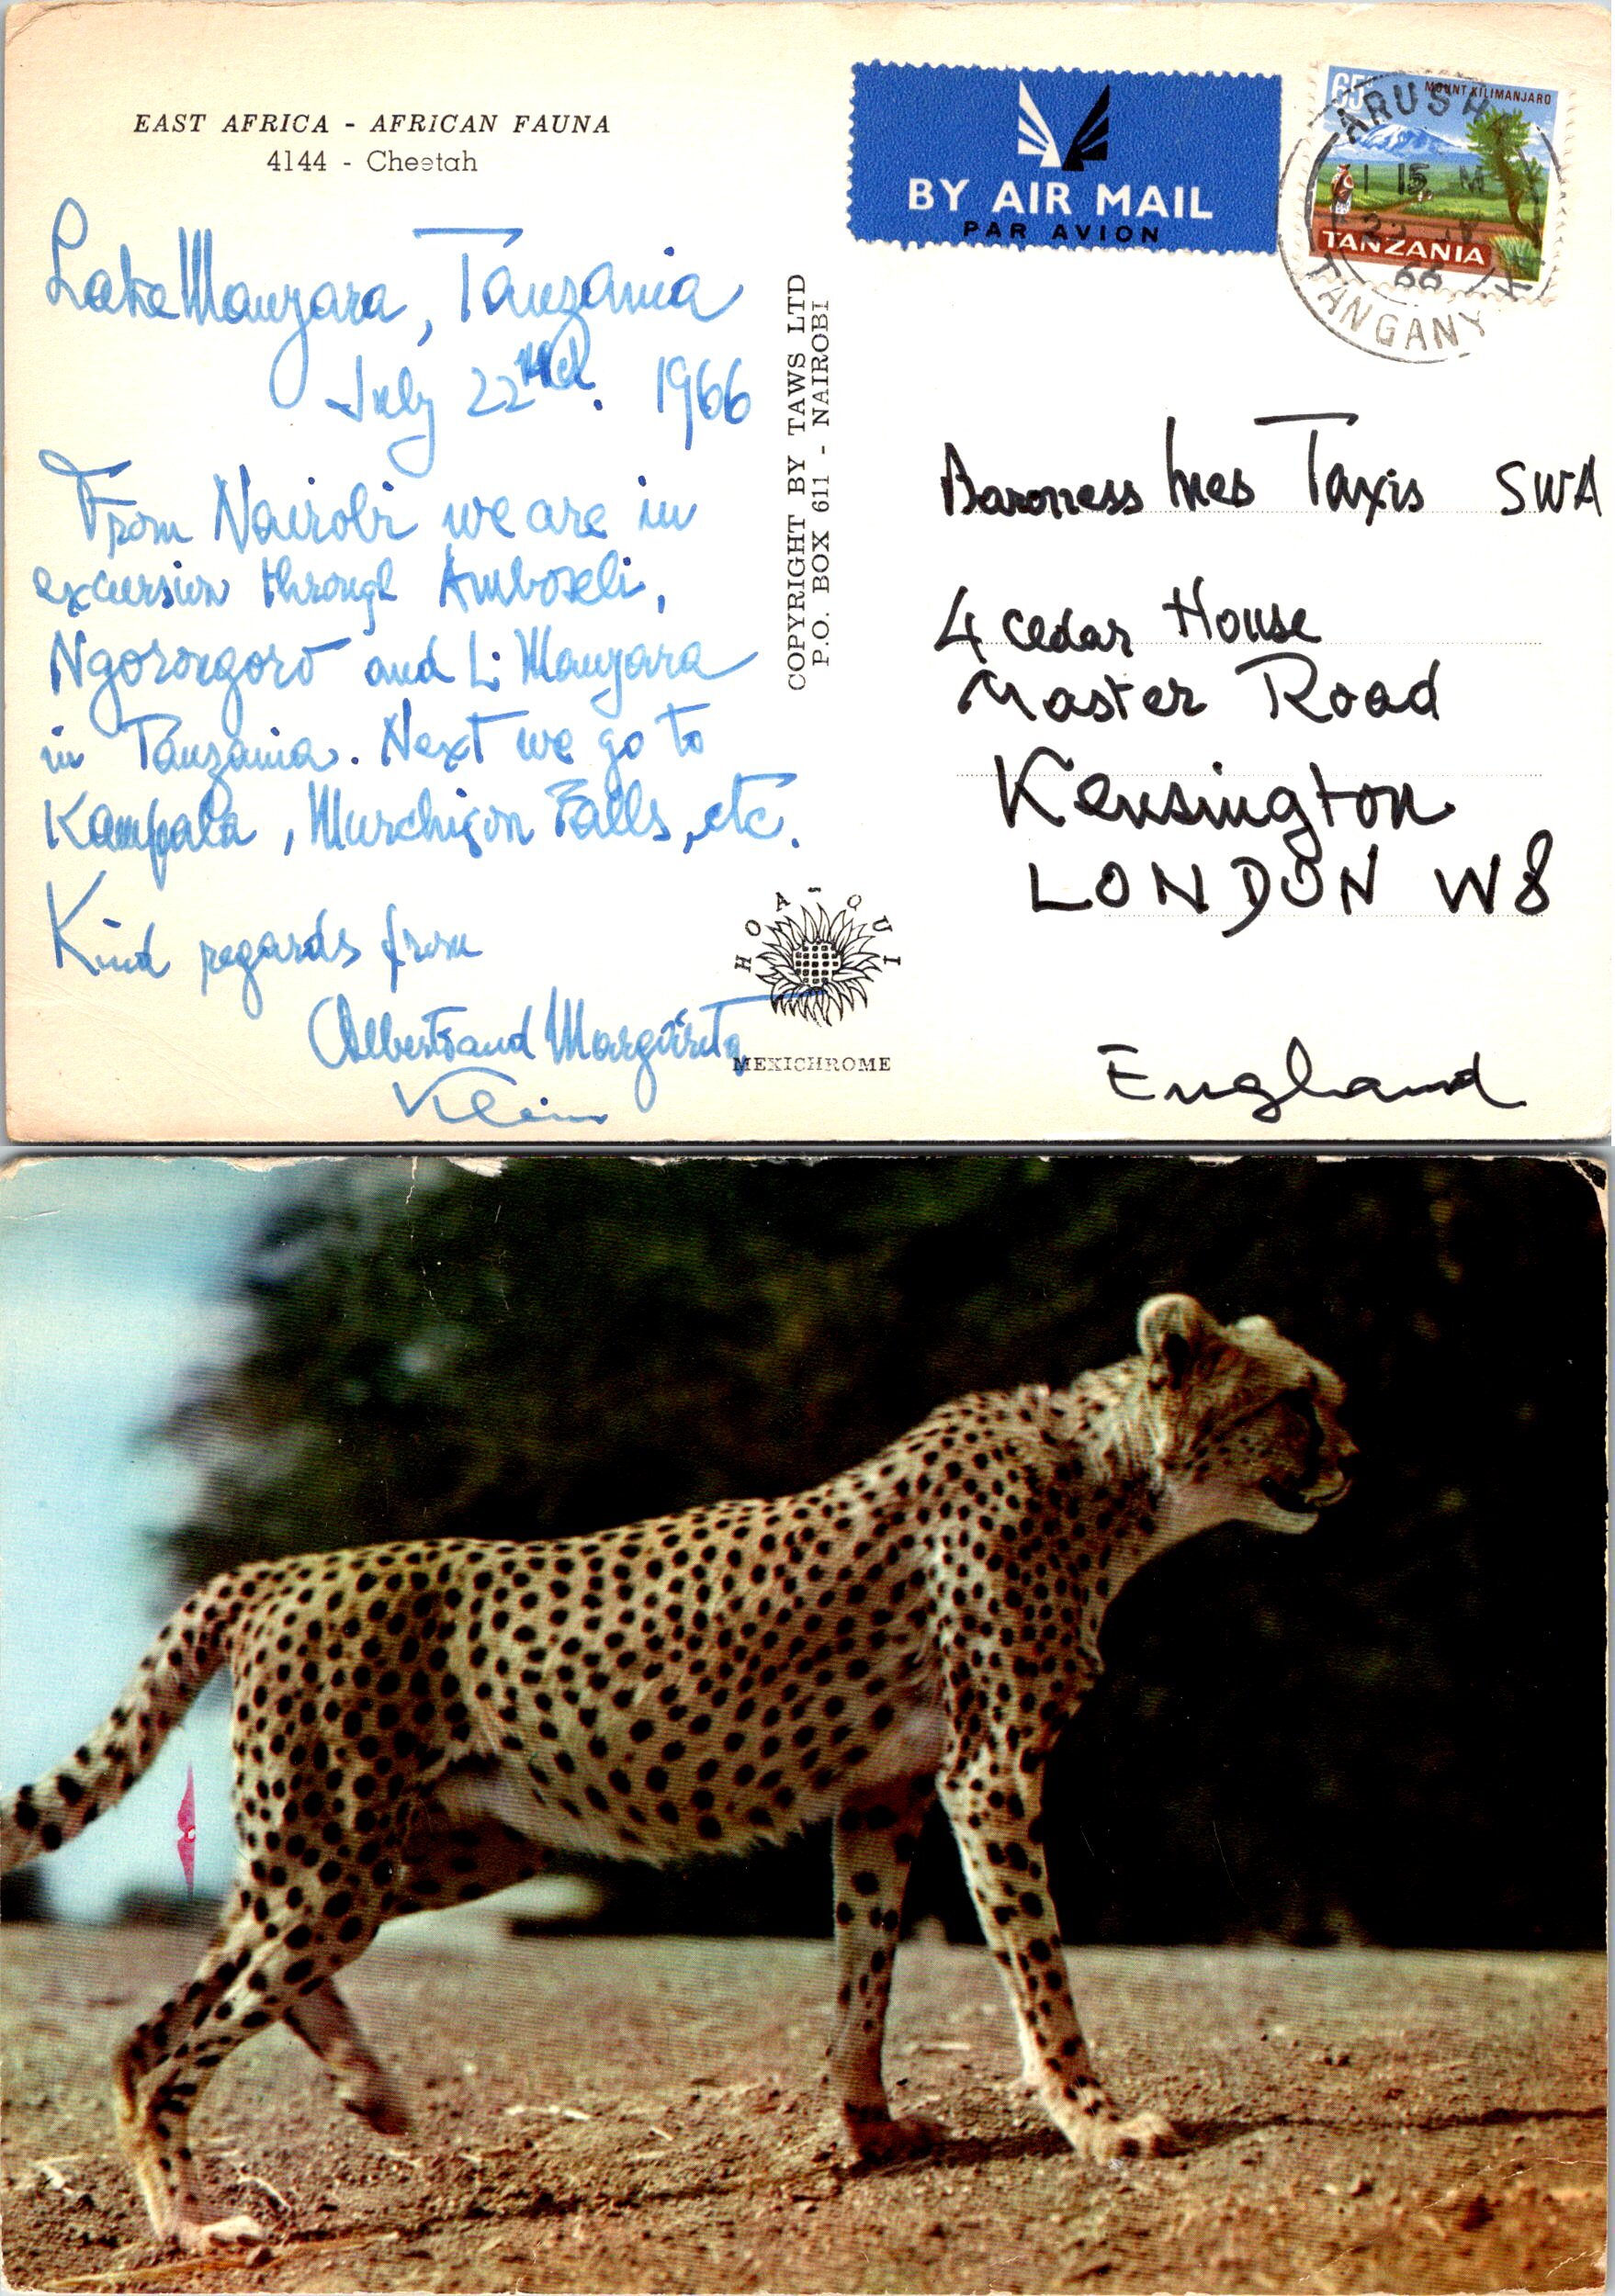 EAST AFRICA - AFRICAN FAUNA
4144 - Cheetah
Lake Manyara, Tanzania
July 22nd. 1966
From Nairobi we are in
excursion through Amboseli,
Ngorongoro and L. Manyara
in Tanzania. Next we go to
Kampala, Murchison Falls, etc.
Kind regards from
Albert and Margarita
Klein
COPYRIGHT BY TAWS LTD
P.O. BOX 611 - NAIROBI
HOA-QUI
MEXICHROME
BY AIR MAIL
PAR AVION
65c MOUNT KILIMANJARO
TANZANIA
ARUSHA
1 15 M
66
TANGANY
Baroness Ines Taxis SWA
4 Cedar House
Master Road
Kensington
LONDON W8
England